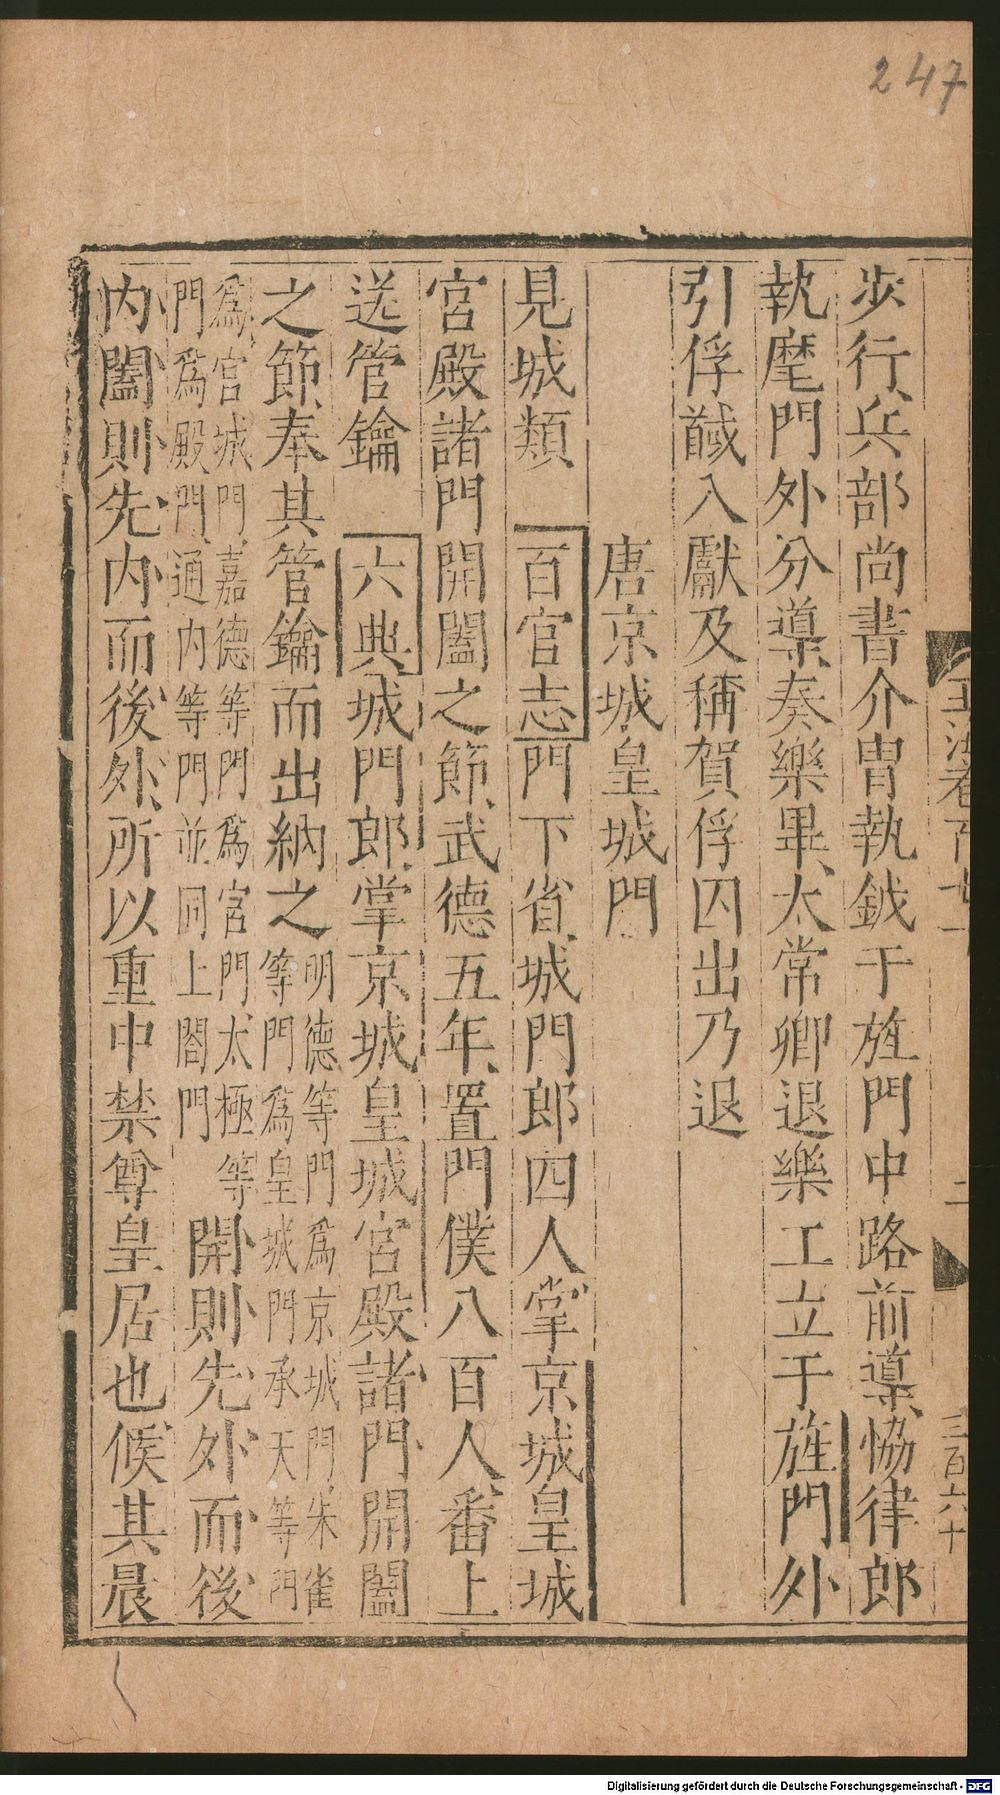 247
步行兵部尚書介胄執鉞于旌門中路前導協律郎
執麾門外分導奏樂畢太常卿退樂工立于旌門外
引俘馘入獻及稱賀俘囚出乃退
唐京城皇城門
見城類 百官志門下省城門郎四人掌京城皇城
宮殿諸門開闔之節武德五年置門僕八百人番上
送管鑰 六典城門郎掌京城皇城宮殿諸門開闔
之節奉其管鑰而出納之明德等門爲京城門朱雀等門爲皇城門承天等門
爲宮城門嘉德等門爲宮門太極等門爲殿門通內等門並同上閤門開則先外而後
內闔則先內而後外所以重中禁尊皇居也候其晨
玉海卷百七十
二
三百六十
Digitalisierung gefördert durch die Deutsche Forschungsgemeinschaft - DFG